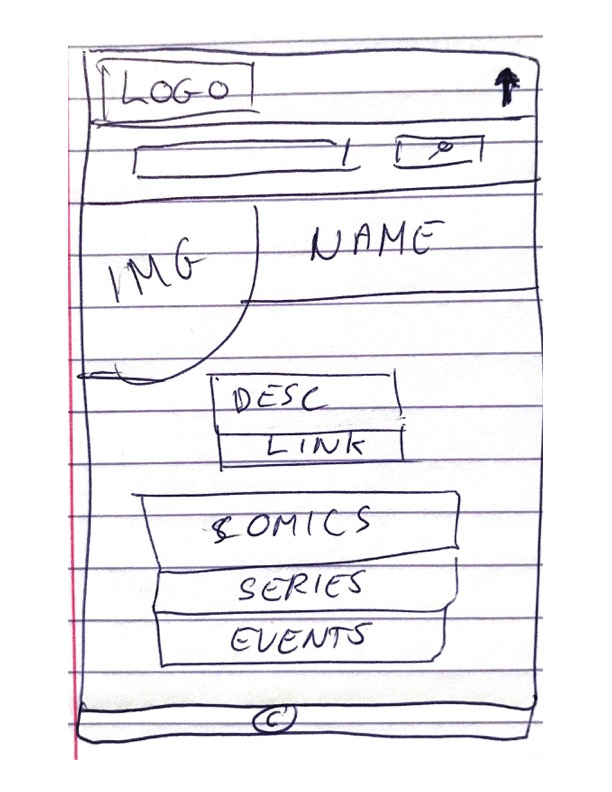 LOGO
IMG
NAME
DESC
LINK
COMICS
SERIES
EVENTS
©